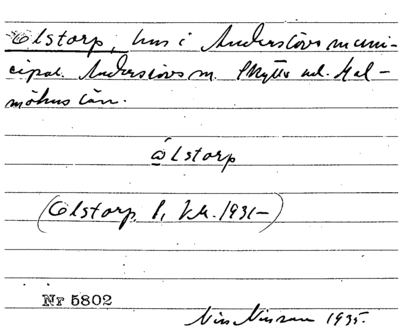 Elstorp, hus i Anderslövs muni-
cipal. Anderslövs sn. Skytts hd. Mal-
möhus län.
ålstorp
(Elstorp 1, kk. 1931-)
Nr 5802
Nils Nilsson 1935.